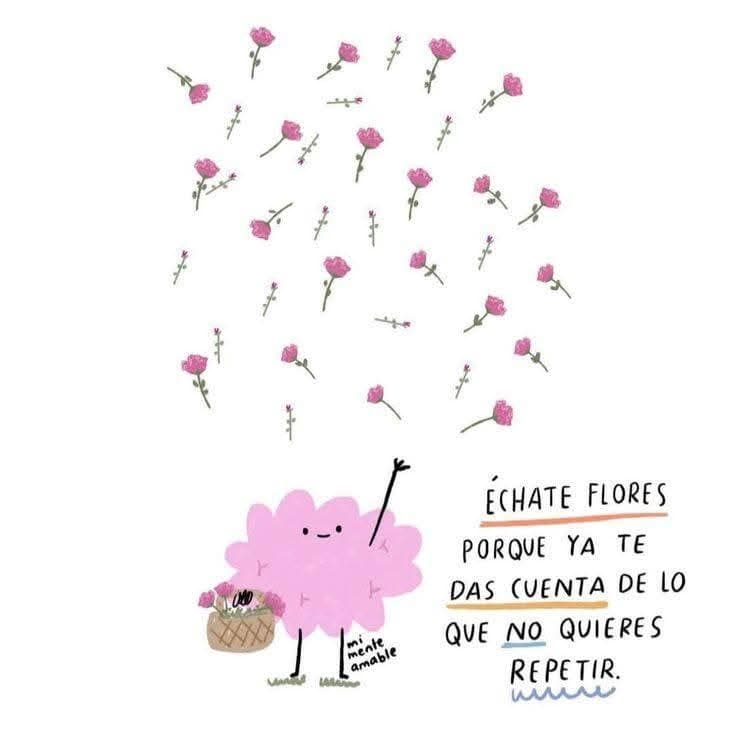 ÉCHATE FLORES
PORQUE YA TE
DAS CUENTA DE LO
QUE NO QUIERES
REPETIR.
mi
mente
amable